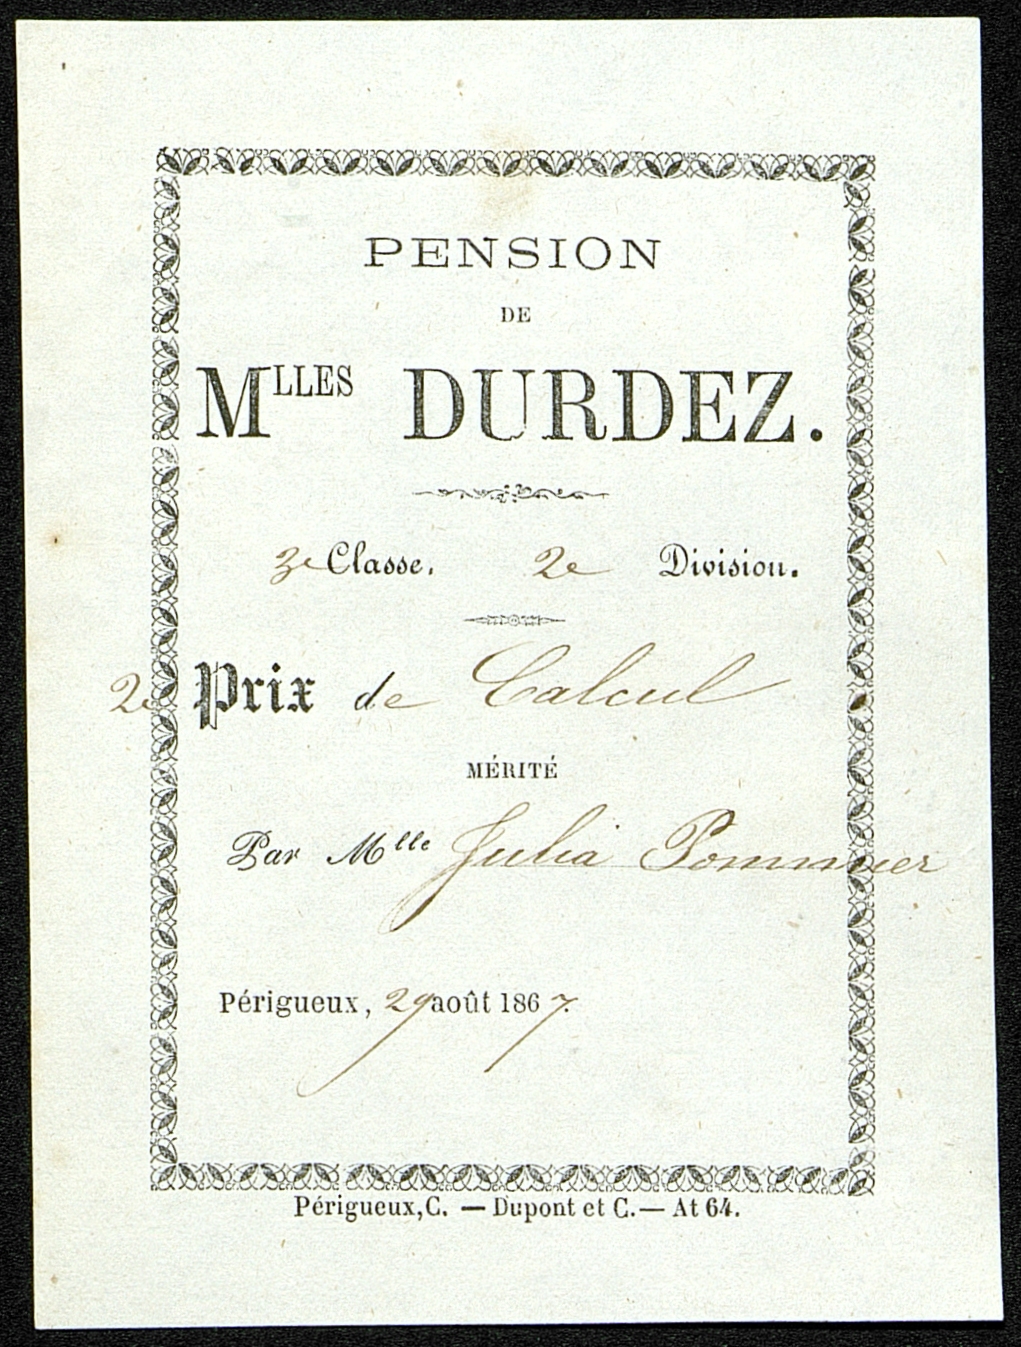 PENSION
DE
MLLES DURDEZ.
3e Classe. 2e Division.
2e Prix de Calcul
MÉRITÉ
Par Mlle Julia Pommier
Périgueux, 29 août 1867.
Périgueux, C. — Dupont et C. — At 64.